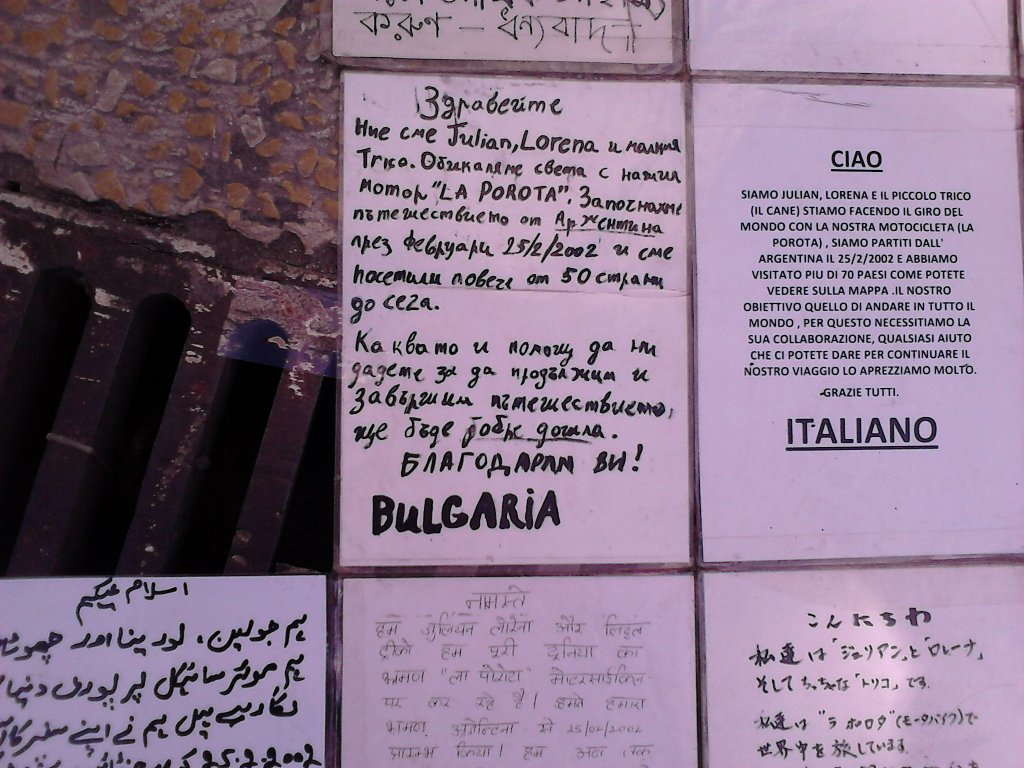 করুণ – ধন্যবাদ
Здравейте
Ние сме Julian, Lorena и малкия
Trico. Обикаляме света с нашия
мотор "LA POROTA". Започнахме
пътешествието от Аржентина
през февруари 25/2/2002 и сме
посетили повече от 50 страни
до сега.
Каквато и помощ да ни
дадете за да продължим и
завършим пътешествието,
ще бъде добре дошла.
БЛАГОДАРЯМ ВИ!
BULGARiA
CIAO
SIAMO JULIAN, LORENA E IL PICCOLO TRICO
(IL CANE) STIAMO FACENDO IL GIRO DEL
MONDO CON LA NOSTRA MOTOCICLETA (LA
POROTA) , SIAMO PARTITI DALL'
ARGENTINA IL 25/2/2002 E ABBIAMO
VISITATO PIU DI 70 PAESI COME POTETE
VEDERE SULLA MAPPA .IL NOSTRO
OBIETTIVO QUELLO DI ANDARE IN TUTTO IL
MONDO , PER QUESTO NECESSITIAMO LA
SUA COLLABORAZIONE, QUALSIASI AIUTO
CHE CI POTETE DARE PER CONTINUARE IL
NOSTRO VIAGGIO LO APREZZIAMO MOLTO.
-GRAZIE TUTTI.
ITALIANO
اسلام علیکم
ہم جولین، لورینا اور چھوٹا
ہم موٹر سائیکل پر پوری دنیا
نے اپنے سفر کا
25.2.2002
नमस्ते
हम जुलियन लोरेना और लिटल
ट्रीको हम पूरी दुनिया का
भ्रमण "ला पोरोटा" मोटरसाईकिल
पर कर रहे है। हमने हमारा
भ्रमण अर्जेन्टिना से 25/02/2002
प्रारम्भ किया। हम अब तक
こんにちわ
私達は「ジュリアン」と「ロレーナ」
そしてちっちゃな「トリコ」です。
私達は"ラ ポロタ"(モータバイク)で
世界中を旅しています。